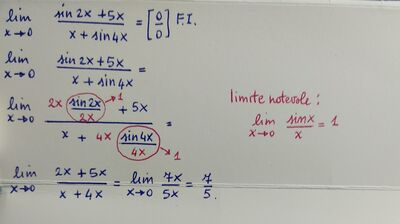 lim x→0 (sin2x + 5x)/(x + sin4x) = [0/0] F.I.
lim x→0 (sin2x + 5x)/(x + sin4x) =
lim x→0 (2x (sin2x)/(2x) →1 + 5x)/(x + 4x (sin4x)/(4x) →1) =
limite notevole:
lim x→0 sinx/x = 1
lim x→0 (2x + 5x)/(x + 4x) = lim x→0 7x/5x = 7/5.